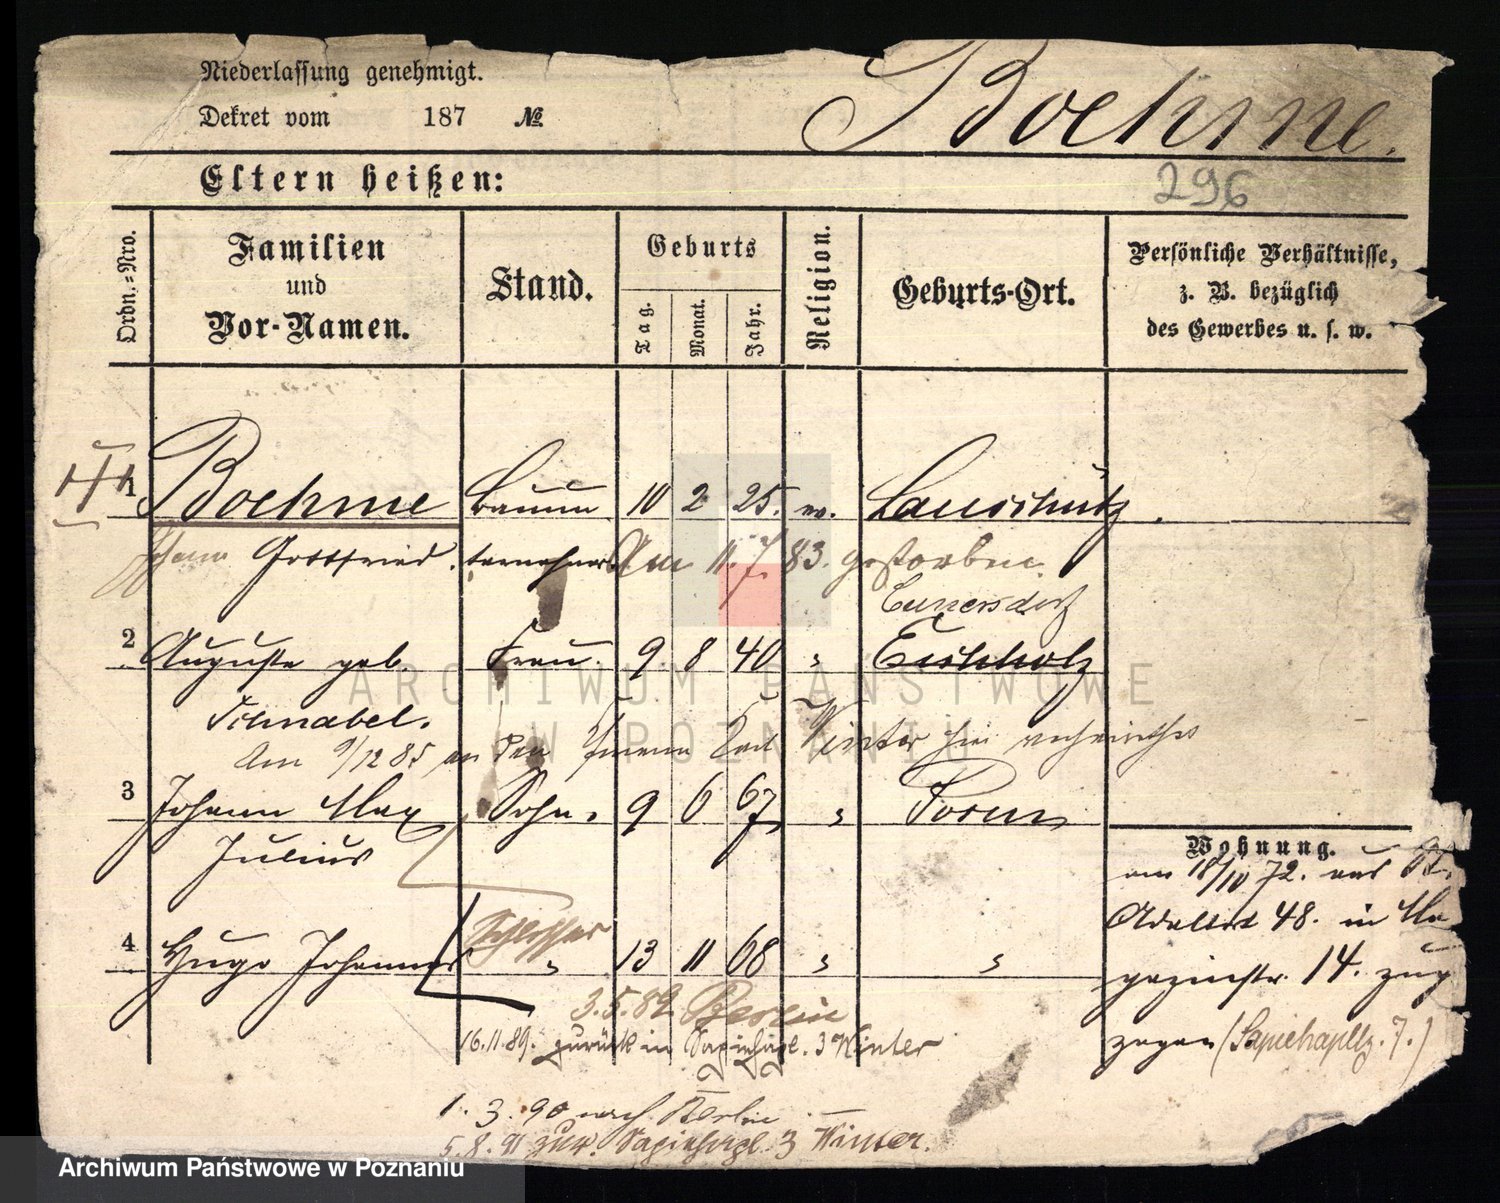 Niederlassung genehmigt.
Dekret vom 187 №
Boehme.
296
Eltern heißen:
Ordn.-Nro.
Familien
und
Vor-Namen.
Stand.
Geburts
Tag.
Monat.
Jahr.
Religion.
Geburts-Ort.
Persönliche Verhältnisse,
z. B. bezüglich
des Gewerbes u. s. w.
1 Boehme Bauun 10 2 25. ev.
Johann Gottfried. ternehmer Am 11. 7. 83. gestorben
Cunersdorf
2 Auguste geb. Frau. 9 8 40 " Eichholz
Schnabel.
Am 9/12 85 an den Karl Winter hier
3 Johann Max Sohn. 9 6 67 " Posen
Julius
Wohnung.
am 18/10 72. aus St.
Adalbert 48. in Ma
Schlosser
4 Hugo Johannes " 13 11 68 " "
gazinstr. 14. zug
3.5.89 Berlin
16.11.89. zurück in Sapiehapl. 3 Winter
zogen (Sapiehapltz. 7.)
1. 3. 90 nach Berlin
5.8.91 zur. Sapiehapl. 3 Winter.
ARCHIWUM PAŃSTWOWE
W POZNANIU
Archiwum Państwowe w Poznaniu